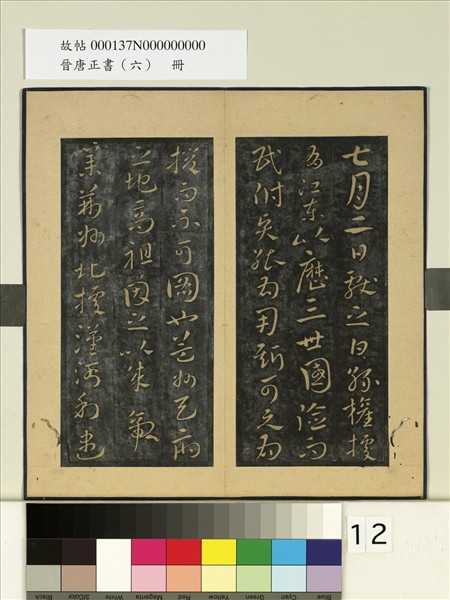 故帖 000137N000000000
晉唐正書（六） 冊
七月二日獻之白孫權據
有江東以歷三世國險而
民附能為用可為
援而不可圖也益州
之地高祖因之以成帝
業荊州北據漢沔利盡
12
Black
3/Color
White
Magenta
Red
Yellow
Green
Cyan
Blue